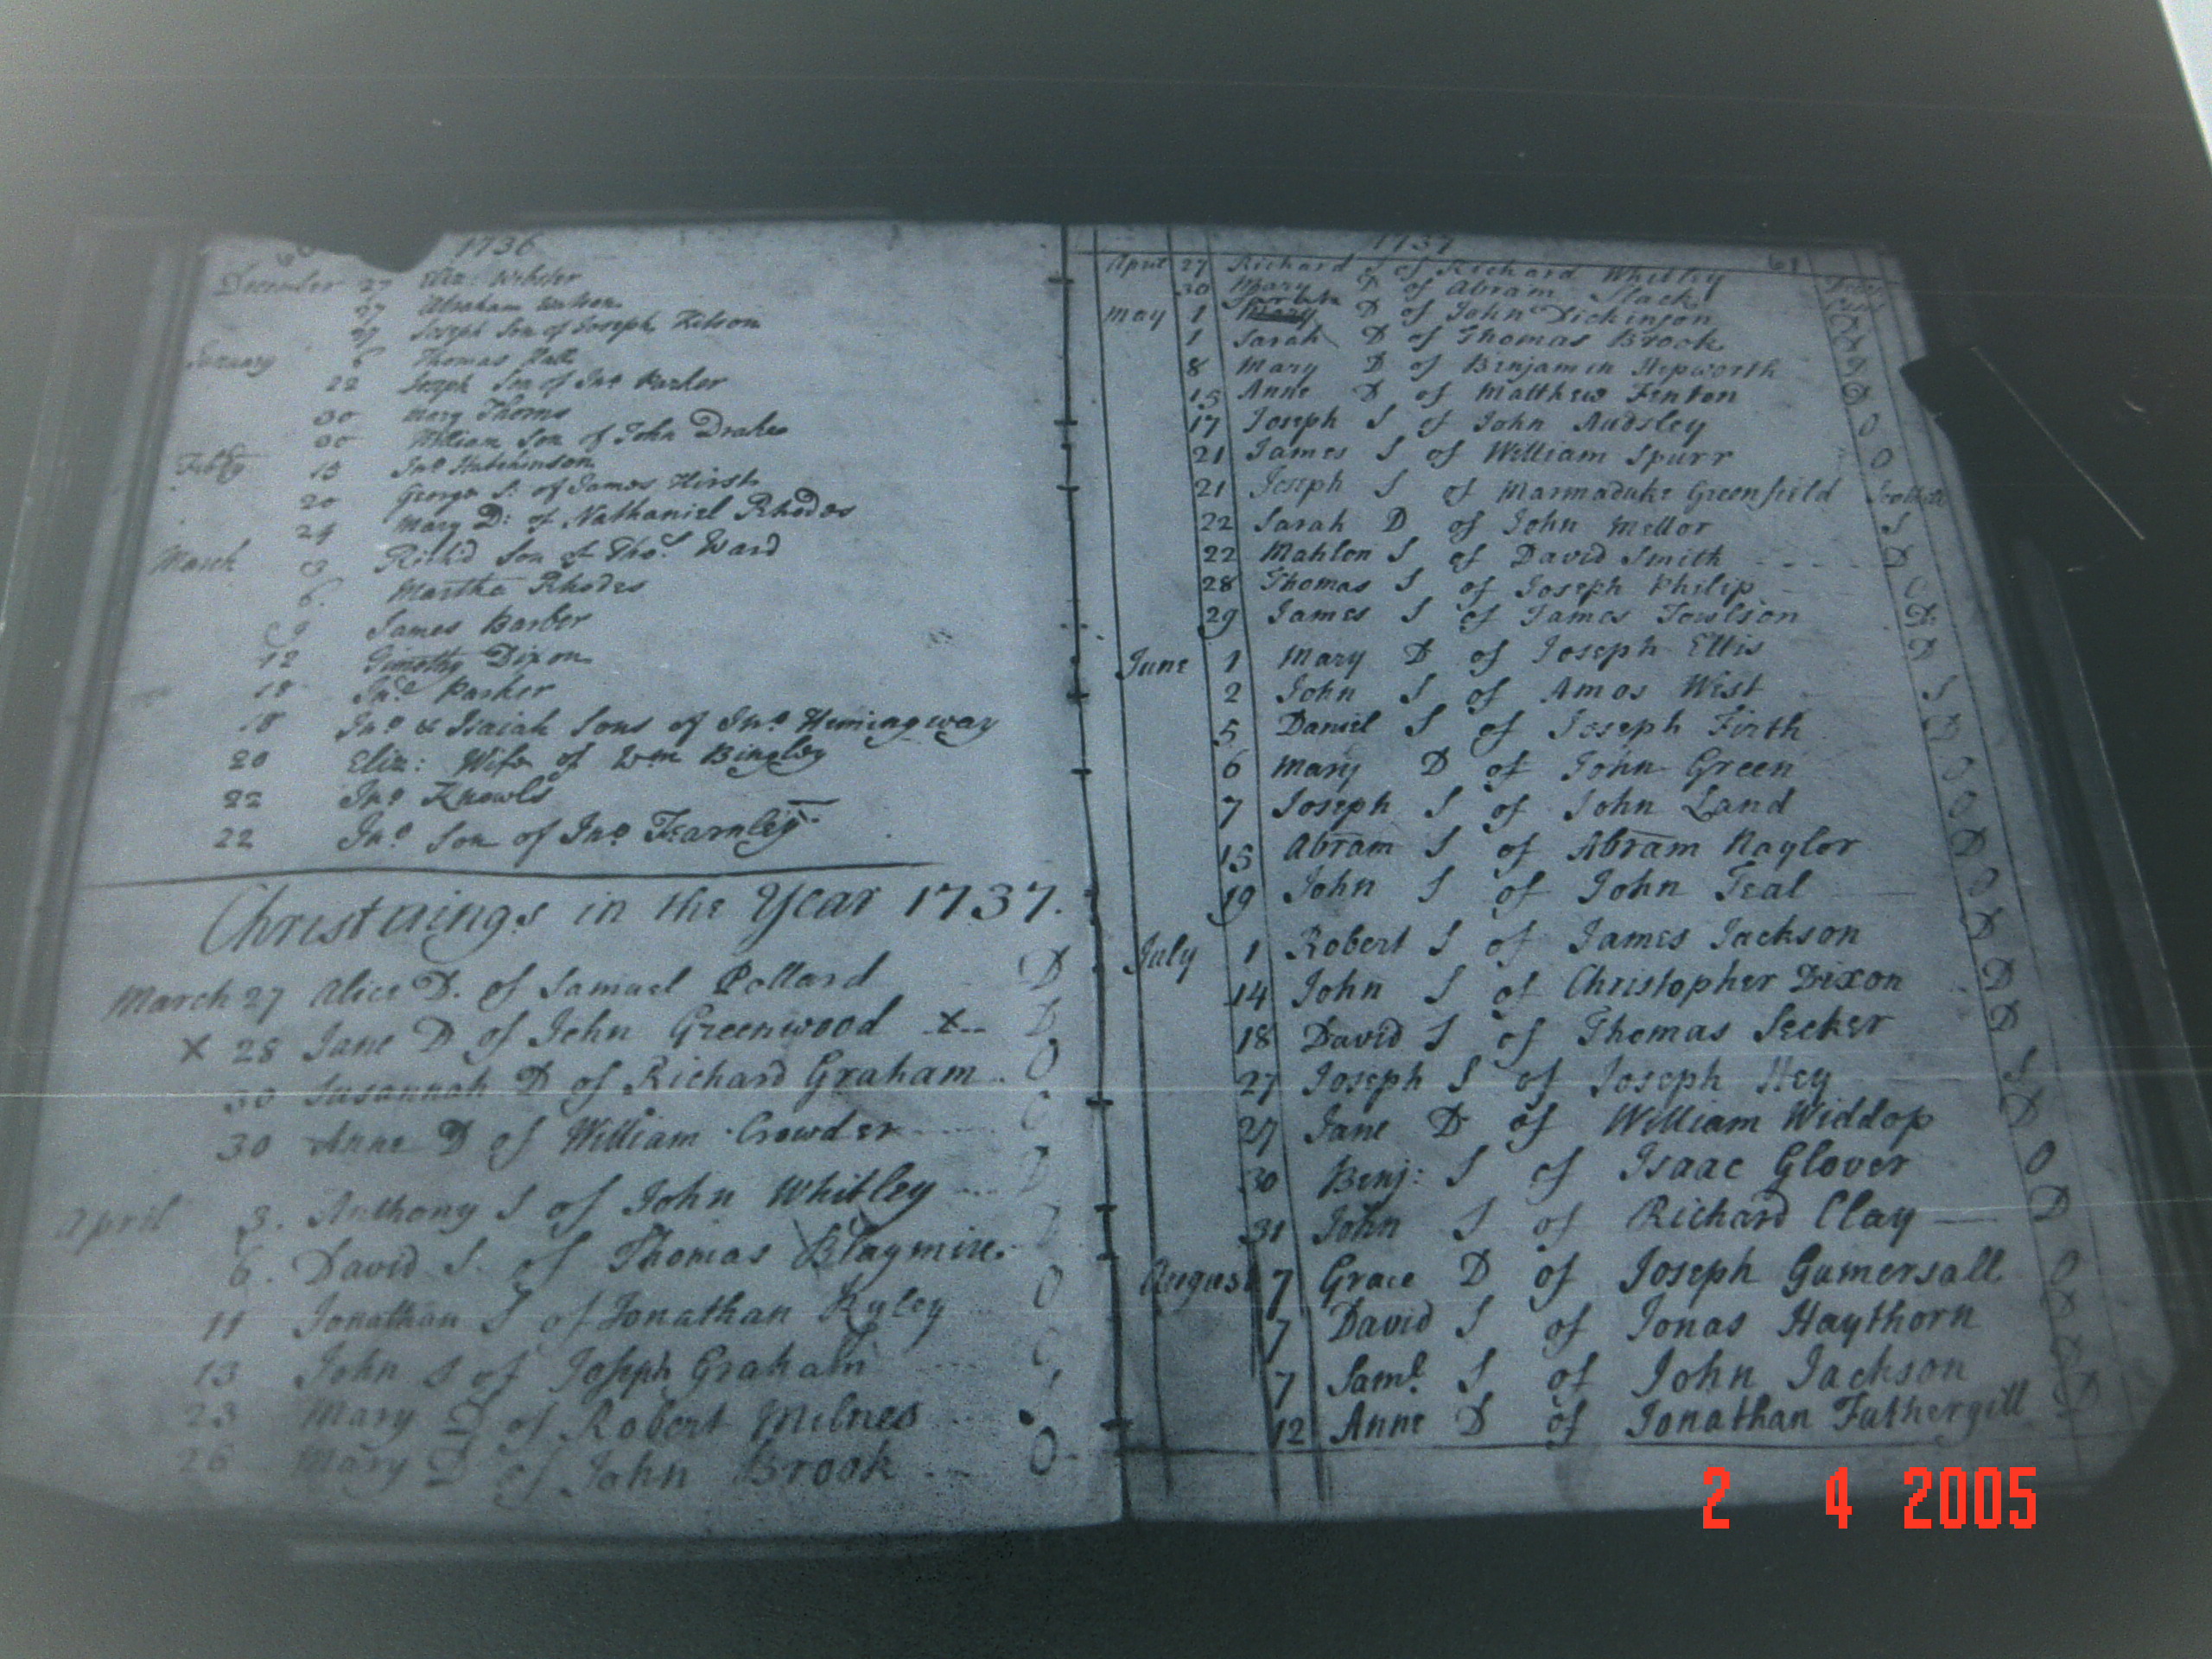 1736
December 27 Eliz: Webster
27 Abraham Watson
27 Joseph Son of Joseph Kitson
January 6 Thomas Hall
22 Joseph Son of Jno Parker
30 Mary Thorns
30 William Son of John Drake
Febry 15 Jno Hutchinson
20 George S: of James Hirst
24 Mary D: of Nathaniel Rhodes
March 3 Richd Son of Thos Ward
6. Martha Rhodes
9 James Barber
12 Timothy Dixon
18 Jno Parker
18 Jno & Isaiah Sons of Jno Hemingway
20 Eliz: Wife of Wm Bingley
22 Jno Knowls
22 Jno Son of Jno Fearnley
Christnings in the Year 1737.
March 27 Alice D. of Samuel Pollard D
X 28 Jane D of John Greenwood X D
30 Susannah D of Richard Graham O
30 Anne D of William Crowder O
April 3. Anthony S of John Whitley D
6. David S. of Thomas Blaymire. D
11 Jonathan S of Jonathan Ryley O
13 John S of Joseph Graham O
23 Mary D of Robert Milnes
26 Mary D of John Brook O
1737 61
April 27 Richard S of Richard Whitley
30 Mary D of Abram Slack
May 1 D of John Dickinson
1 Sarah D of Thomas Brook
8 Mary D of Benjamin Hepworth D
15 Anne D of Matthew Fenton D
17 Joseph S of John Audsley O
21 James S of William Spurr O
21 Joseph S of Marmaduke Greenfield
22 Sarah D of John Mellor S
22 Mahlon S of David Smith D
28 Thomas S of Joseph Philip O
29 James S of James Towlson D:
June 1 Mary D of Joseph Ellis D
2 John S of Amos West S
5 Daniel S of Joseph Firth D
6 Mary D of John Green O
7 Joseph S of John Land O
15 Abram S of Abram Naylor D
19 John S of John Teal O
July 1 Robert S of James Jackson D
14 John S of Christopher Dixon D
18 David S of Thomas Secker D
27 Joseph S of Joseph Hey S
27 Jane D of William Widdop D
30 Benj: S of Isaac Glover O
31 John S of Richard Clay D
August 7 Grace D of Joseph Gumersall O
7 David S of Jonas Haythorn
7 Saml. S of John Jackson
12 Anne D of Jonathan Futhergill D
2 4 2005